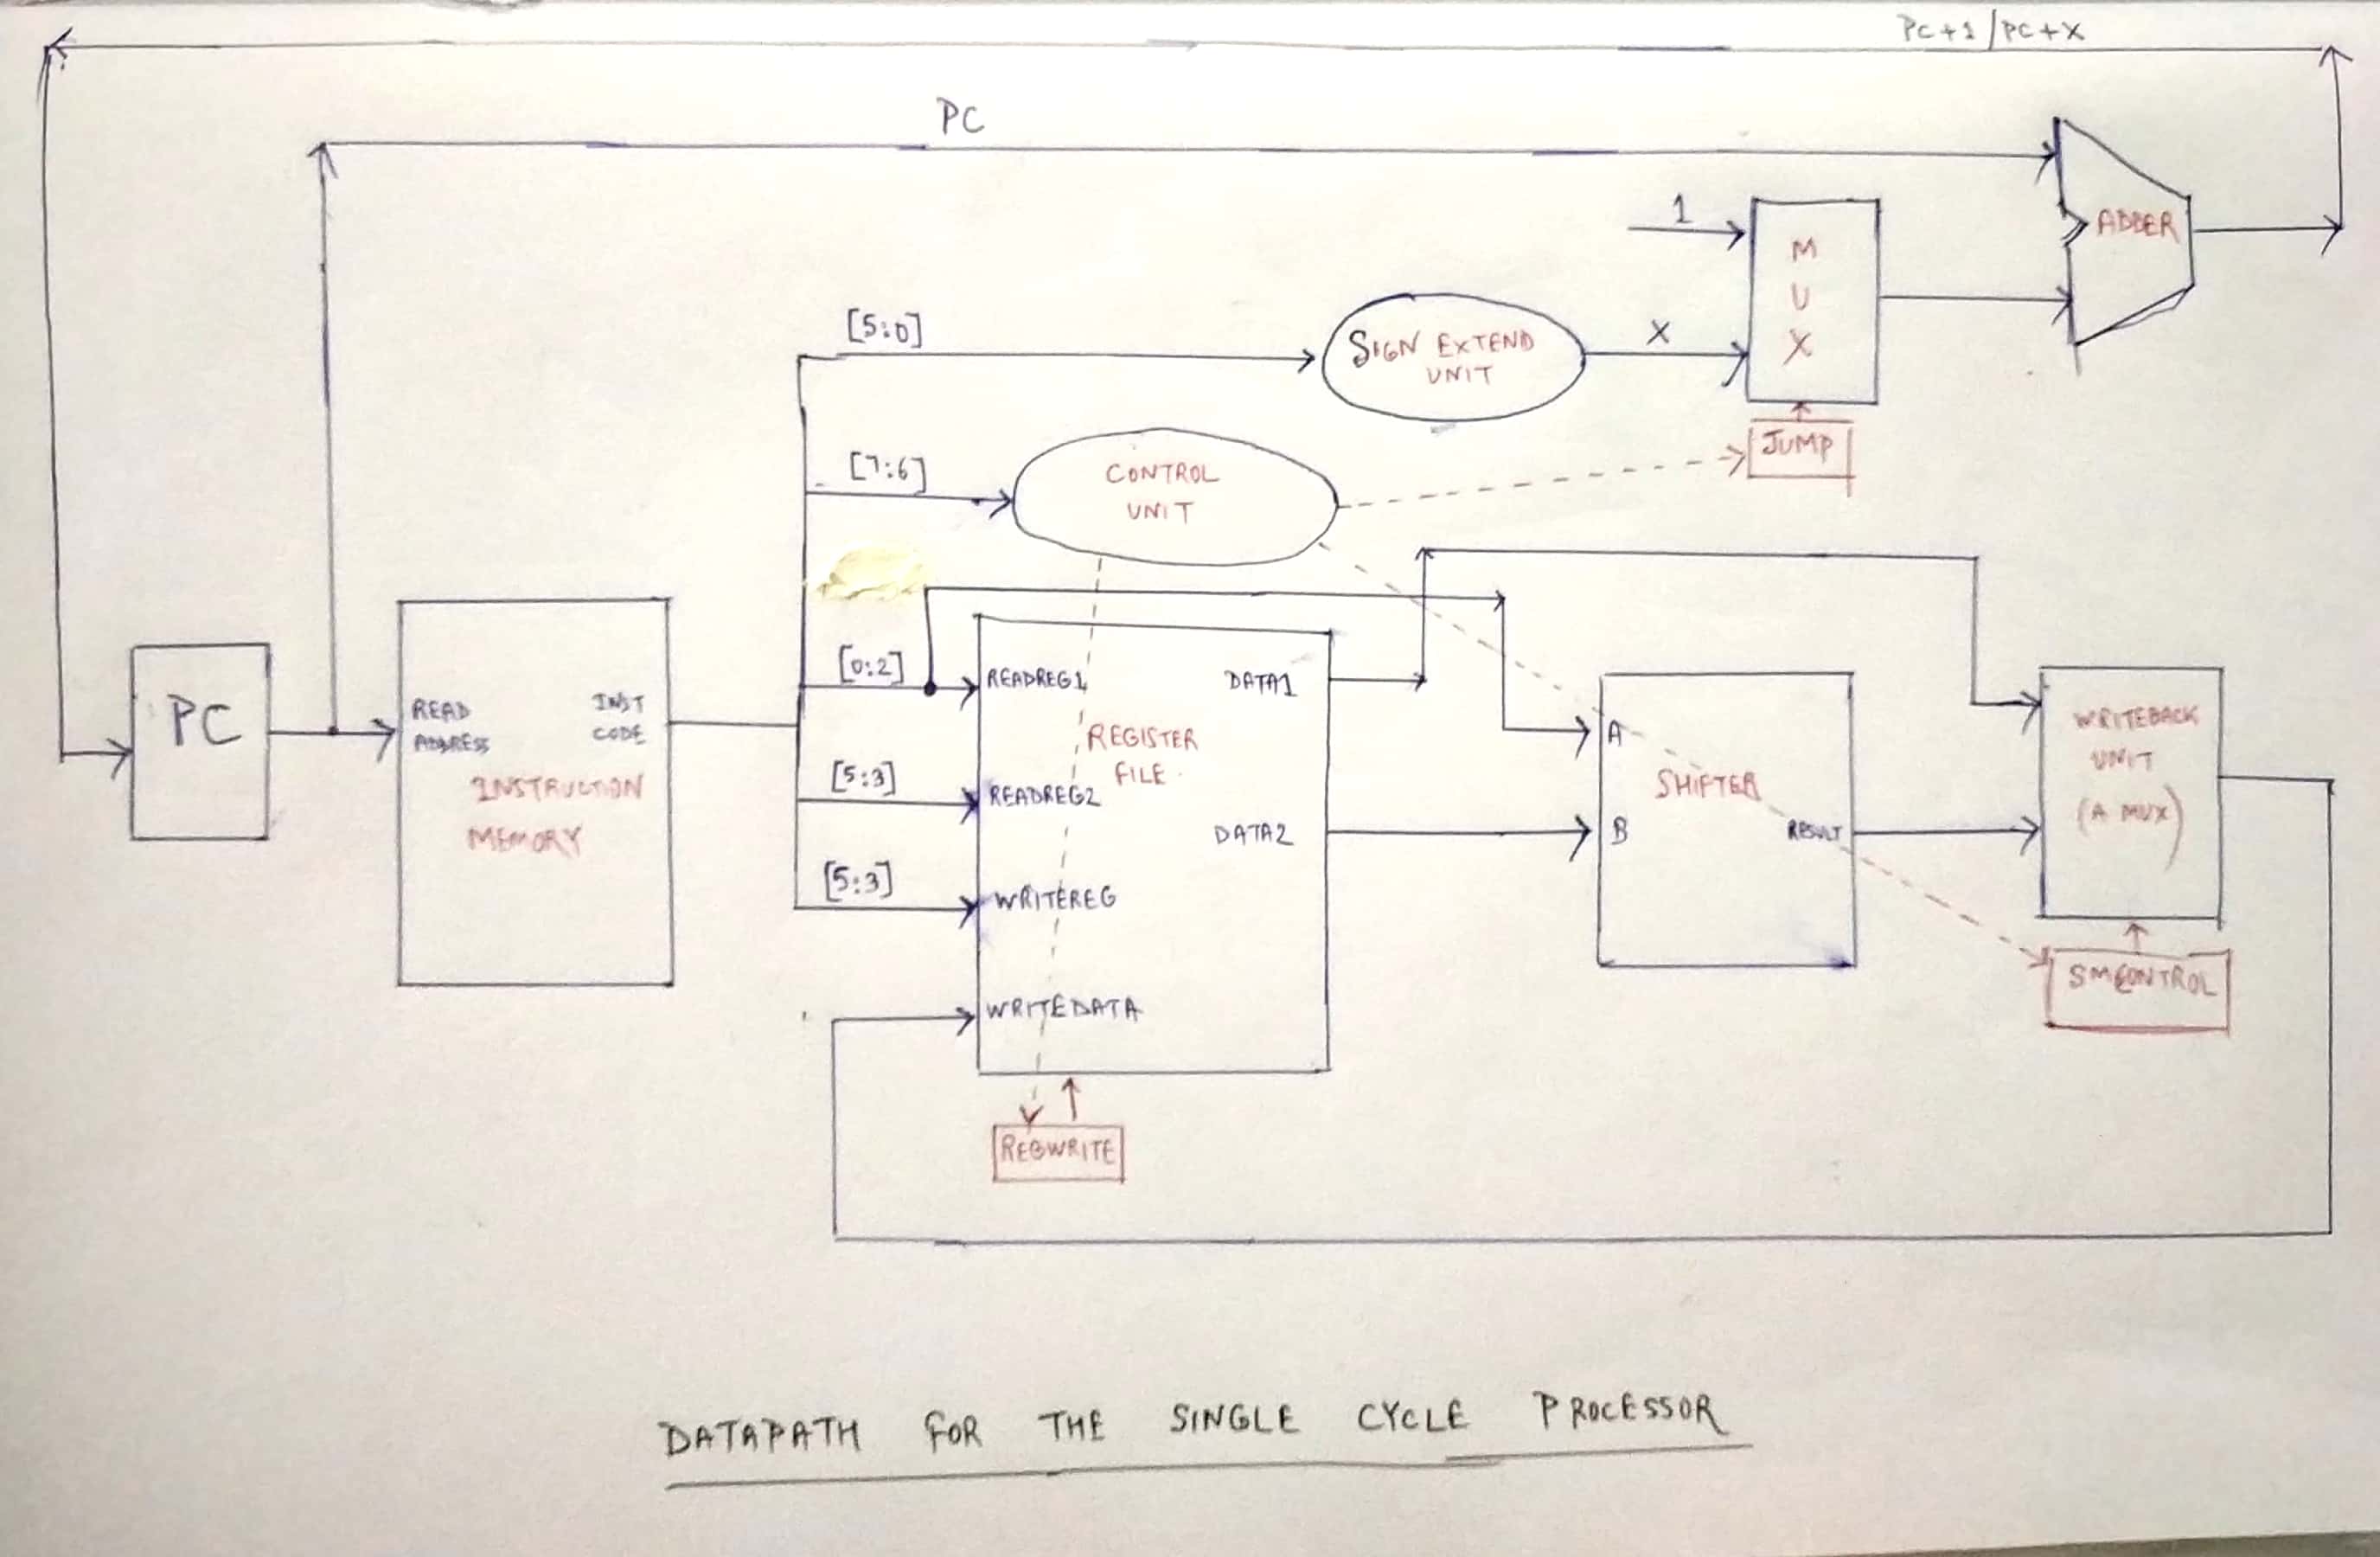 PC+1/PC+X
PC
ADDER
1
M
U
X
[5:0]
SIGN EXTEND
UNIT
X
JUMP
[7:6]
CONTROL
UNIT
PC
READ
ADDRESS
INST
CODE
INSTRUCTION
MEMORY
[0:2]
READREG1
DATA1
REGISTER
FILE
[5:3]
READREG2
DATA2
[5:3]
WRITEREG
WRITEDATA
REGWRITE
A
SHIFTER
B
RESULT
WRITEBACK
UNIT
(A MUX)
SMCONTROL
DATAPATH FOR THE SINGLE CYCLE PROCESSOR